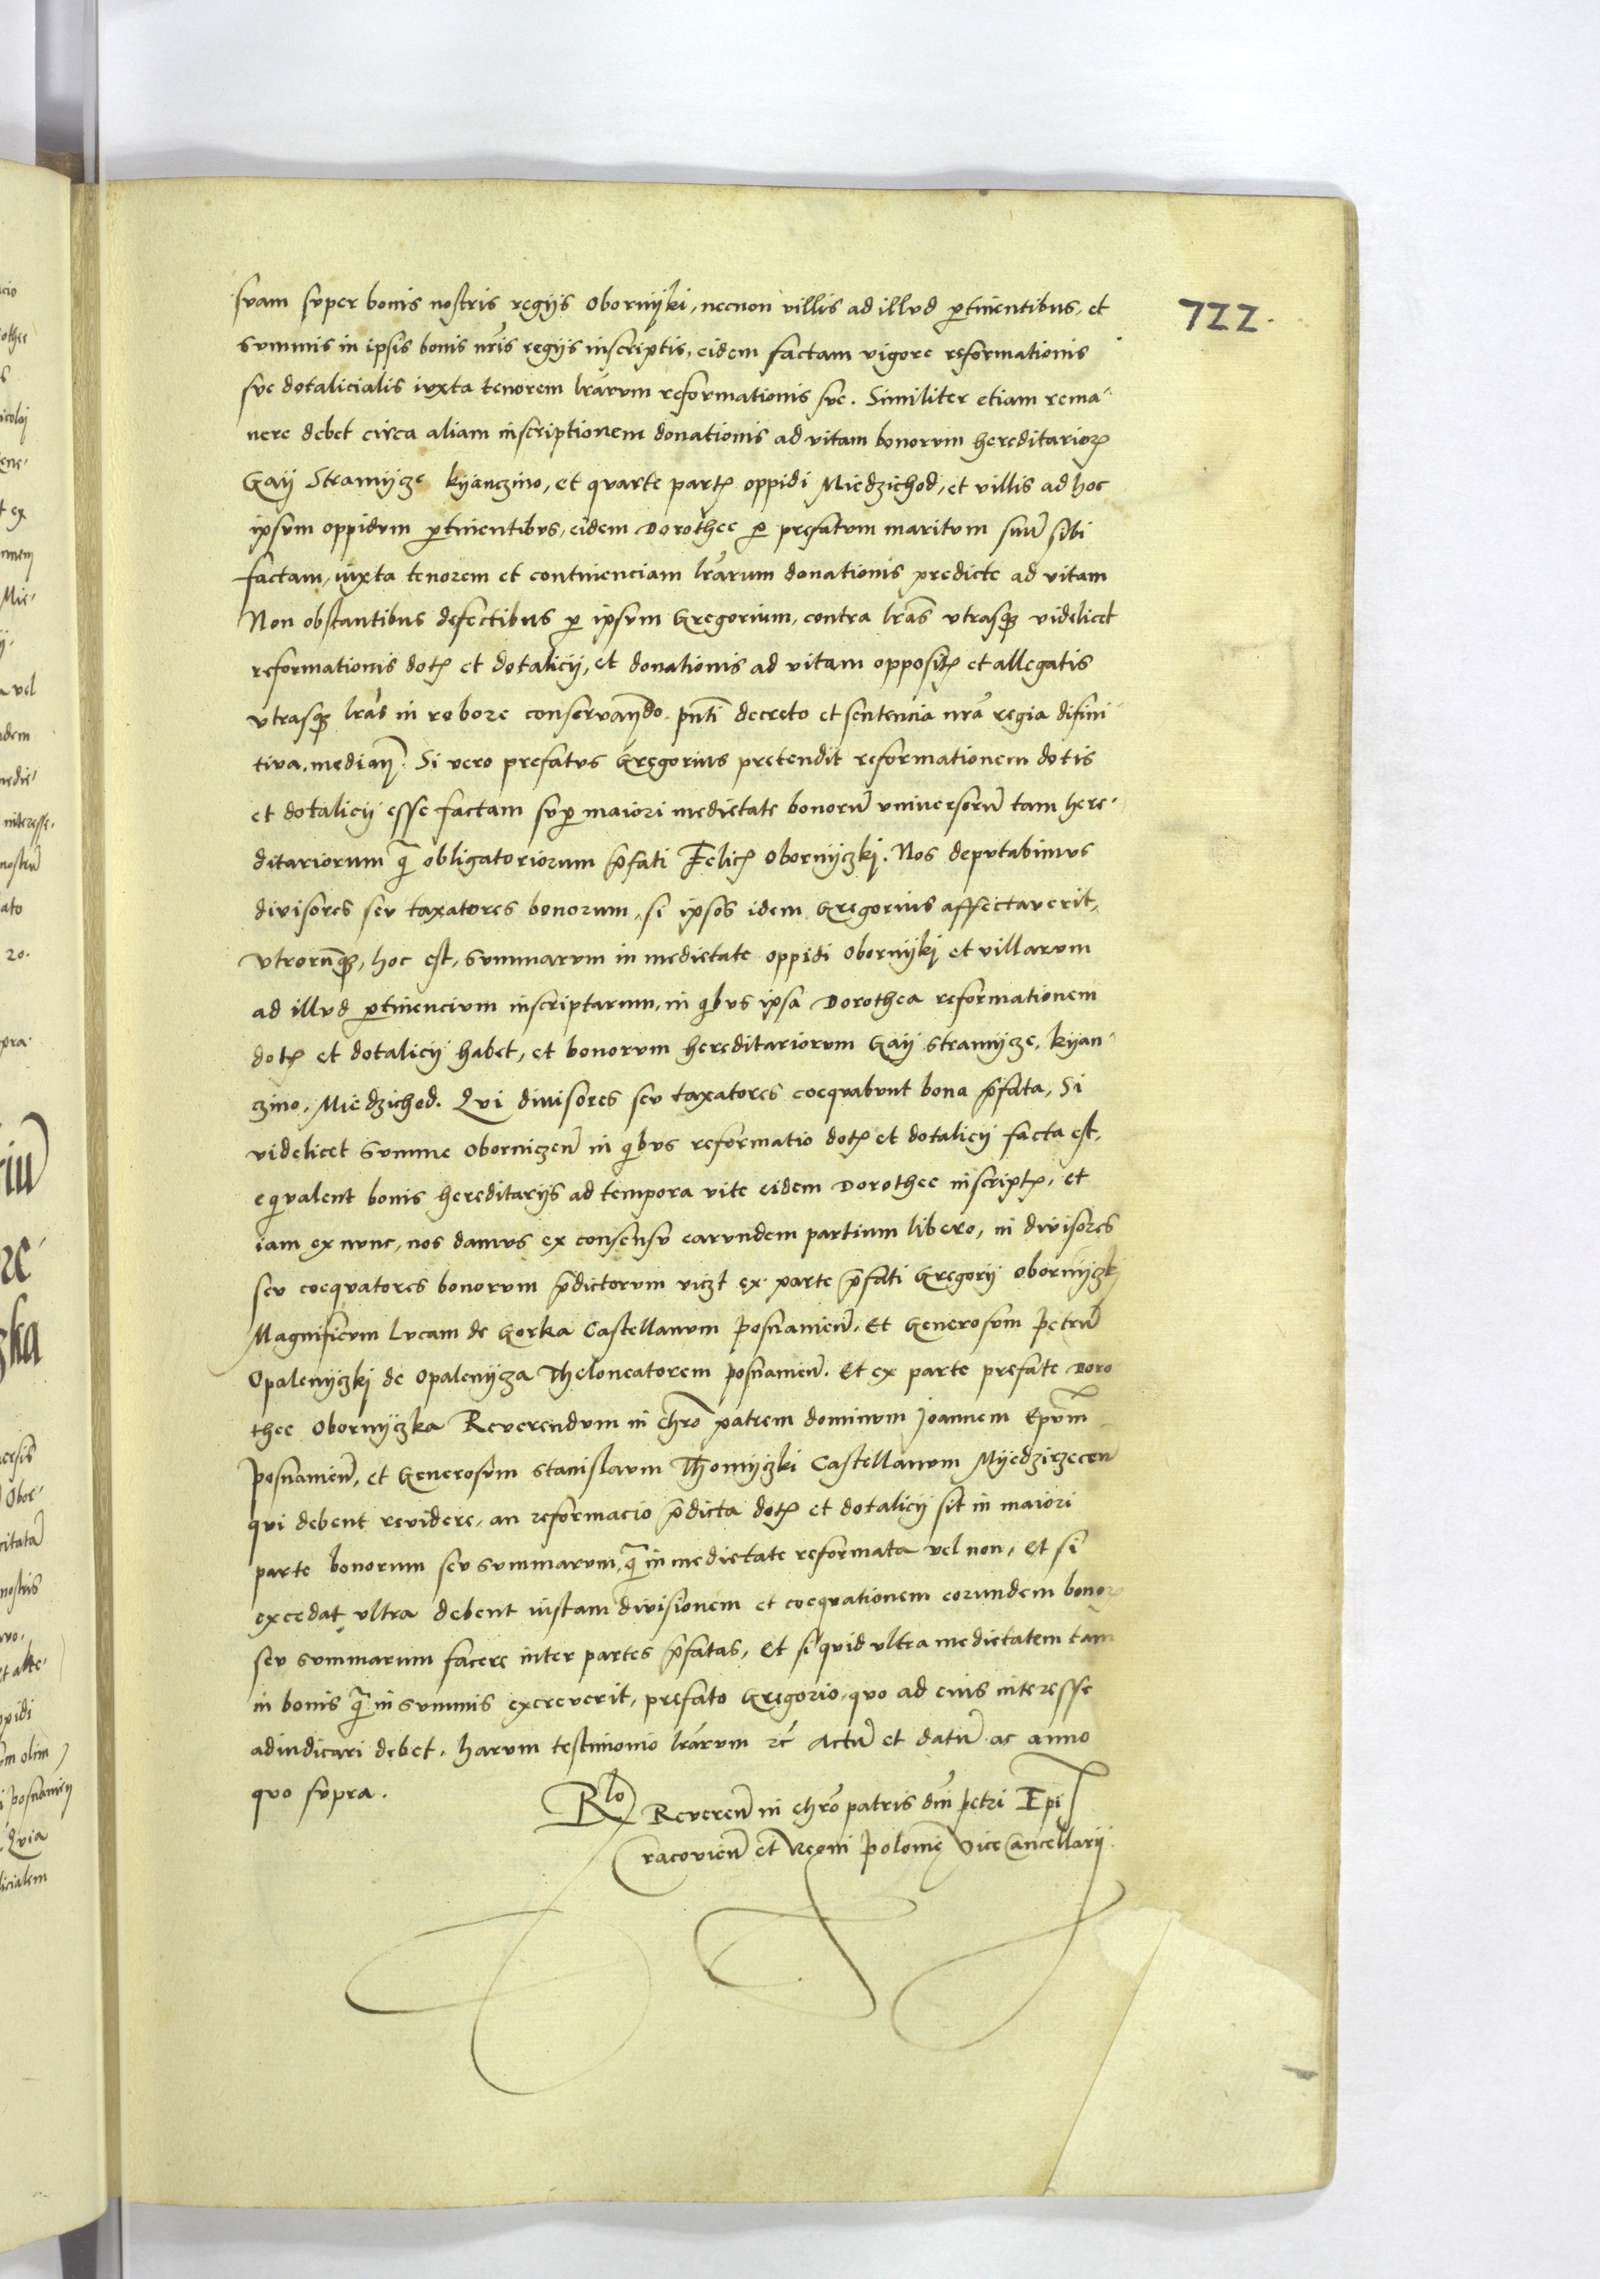 722.
suam super bonis nostris regijs Obornijki, necnon villis ad illud ptinentibus, et
summis in ipsis bonis nris regijs inscriptis, eidem factam vigore reformationis
sue dotalicialis iuxta tenorem lrarum reformationis sue. Similiter etiam rema-
nere debet circa aliam inscriptionem donationis ad vitam bonorum hereditarior
Gaij Stramijcze kijanczino, et quarte part oppidi Miedzichod, et villis ad hoc
ipsum oppidum ptinentibus, eidem Dorothee p prefatum maritum suu sibi
factam, iuxta tenorem et continenciam lrarum donationis predicte ad vitam
Non obstantibus defectibus p ipsum Gregorium, contra lras utrasq videlicet
reformationis dot et dotalicij, et donationis ad vitam opposit et allegatis
utrasq lras in robore conservando. pnti decreto et sentencia nra regia difini-
tiva median. Si vero prefatus Gregorius pretendit reformationem dotis
et dotalicij esse factam sup maiori medietate bonoru universoru tam here-
ditariorum q obligatoriorum pfati Felic Obornijczkj. Nos deputabimus
divisores seu taxatores bonorum, si ipsos idem Gregorius affectaverit,
utroruq, hoc est, summarum in medietate oppidi Obornijkj et villarum
ad illud ptinencium inscriptarum, in qbus ipsa Dorothea reformationem
dot et dotalicij habet, et bonorum hereditariorum Gaij stramijcze, kijan-
czino, Miedzichod. Qui divisores seu taxatores coequabunt bona pfata, Si
videlicet summe Oborniczen in qbus reformatio dot et dotalicij facta est,
equalent bonis hereditarijs ad tempora vite eidem Dorothee inscript, et
iam ex nunc, nos damus ex consensu earundem partium libero, in divisores
seu coequatores bonorum pdictorum viczt ex parte pfati Gregorij Obornijczkj
Magnificum Lucam de Gorka Castellanum Posnanien, Et Generosum Petru
Opalenijczkj de Opalenijcza Theloneatorem Posnanien. Et ex parte prefate Doro
thee Obornijczka Reverendum in chro patrem dominum Joannem Epum
Posnanien, et Generosum Stanislaum Thomijczki Castellanum Mijedzirzecen
qui debent revidere, an reformacio pdicta dot et dotalicij sit in maiori
parte bonorum seu summarum, q in medietate reformata vel non, et si
excedat, ultra debent iustam divisionem et coequationem eorundem bonor
seu summarum facere inter partes pfatas, Et si quid ultra medietatem tam
in bonis q in summis excreverit, prefato Gregorio, quo ad eius interesse
adiudicari debet. Harum testimonio lrarum rc Actu et datu ac anno
quo supra.
Rlo Reveren in chro patris dni Petri Epi
Cracovien et Regni Polonie Vice Cancellarij.